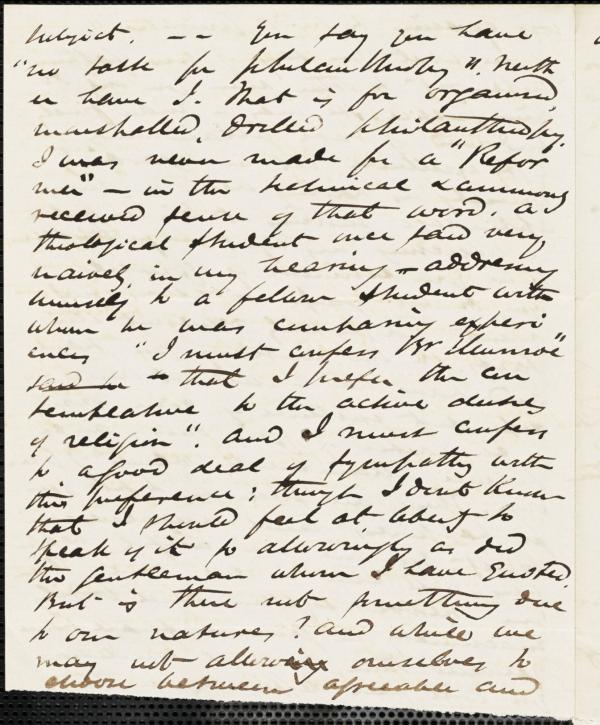 subject. -- You say you have
"no taste for philanthropy". Neith
er have I. That is for organised,
marshalled, drilled philanthropy.
I was never made for a "Refor
mer" - in the technical & commonly
received sense of that word. A
theological student once said very
naively, in my hearing - addressing
himself to a fellow student with
whom he was comparing experi
ences "I must confess Br Munroe"
said he - that I prefer the con
templative to the active duties
of religion". And I must confess
to a good deal of sympathy with
this preference; though I don't know
that I should feel at liberty to
speak of it so allowingly as did
the gentleman whom I have quoted.
But is there not something due
to our natures? And while we
may not allow ourselves to
choose between agreeable and